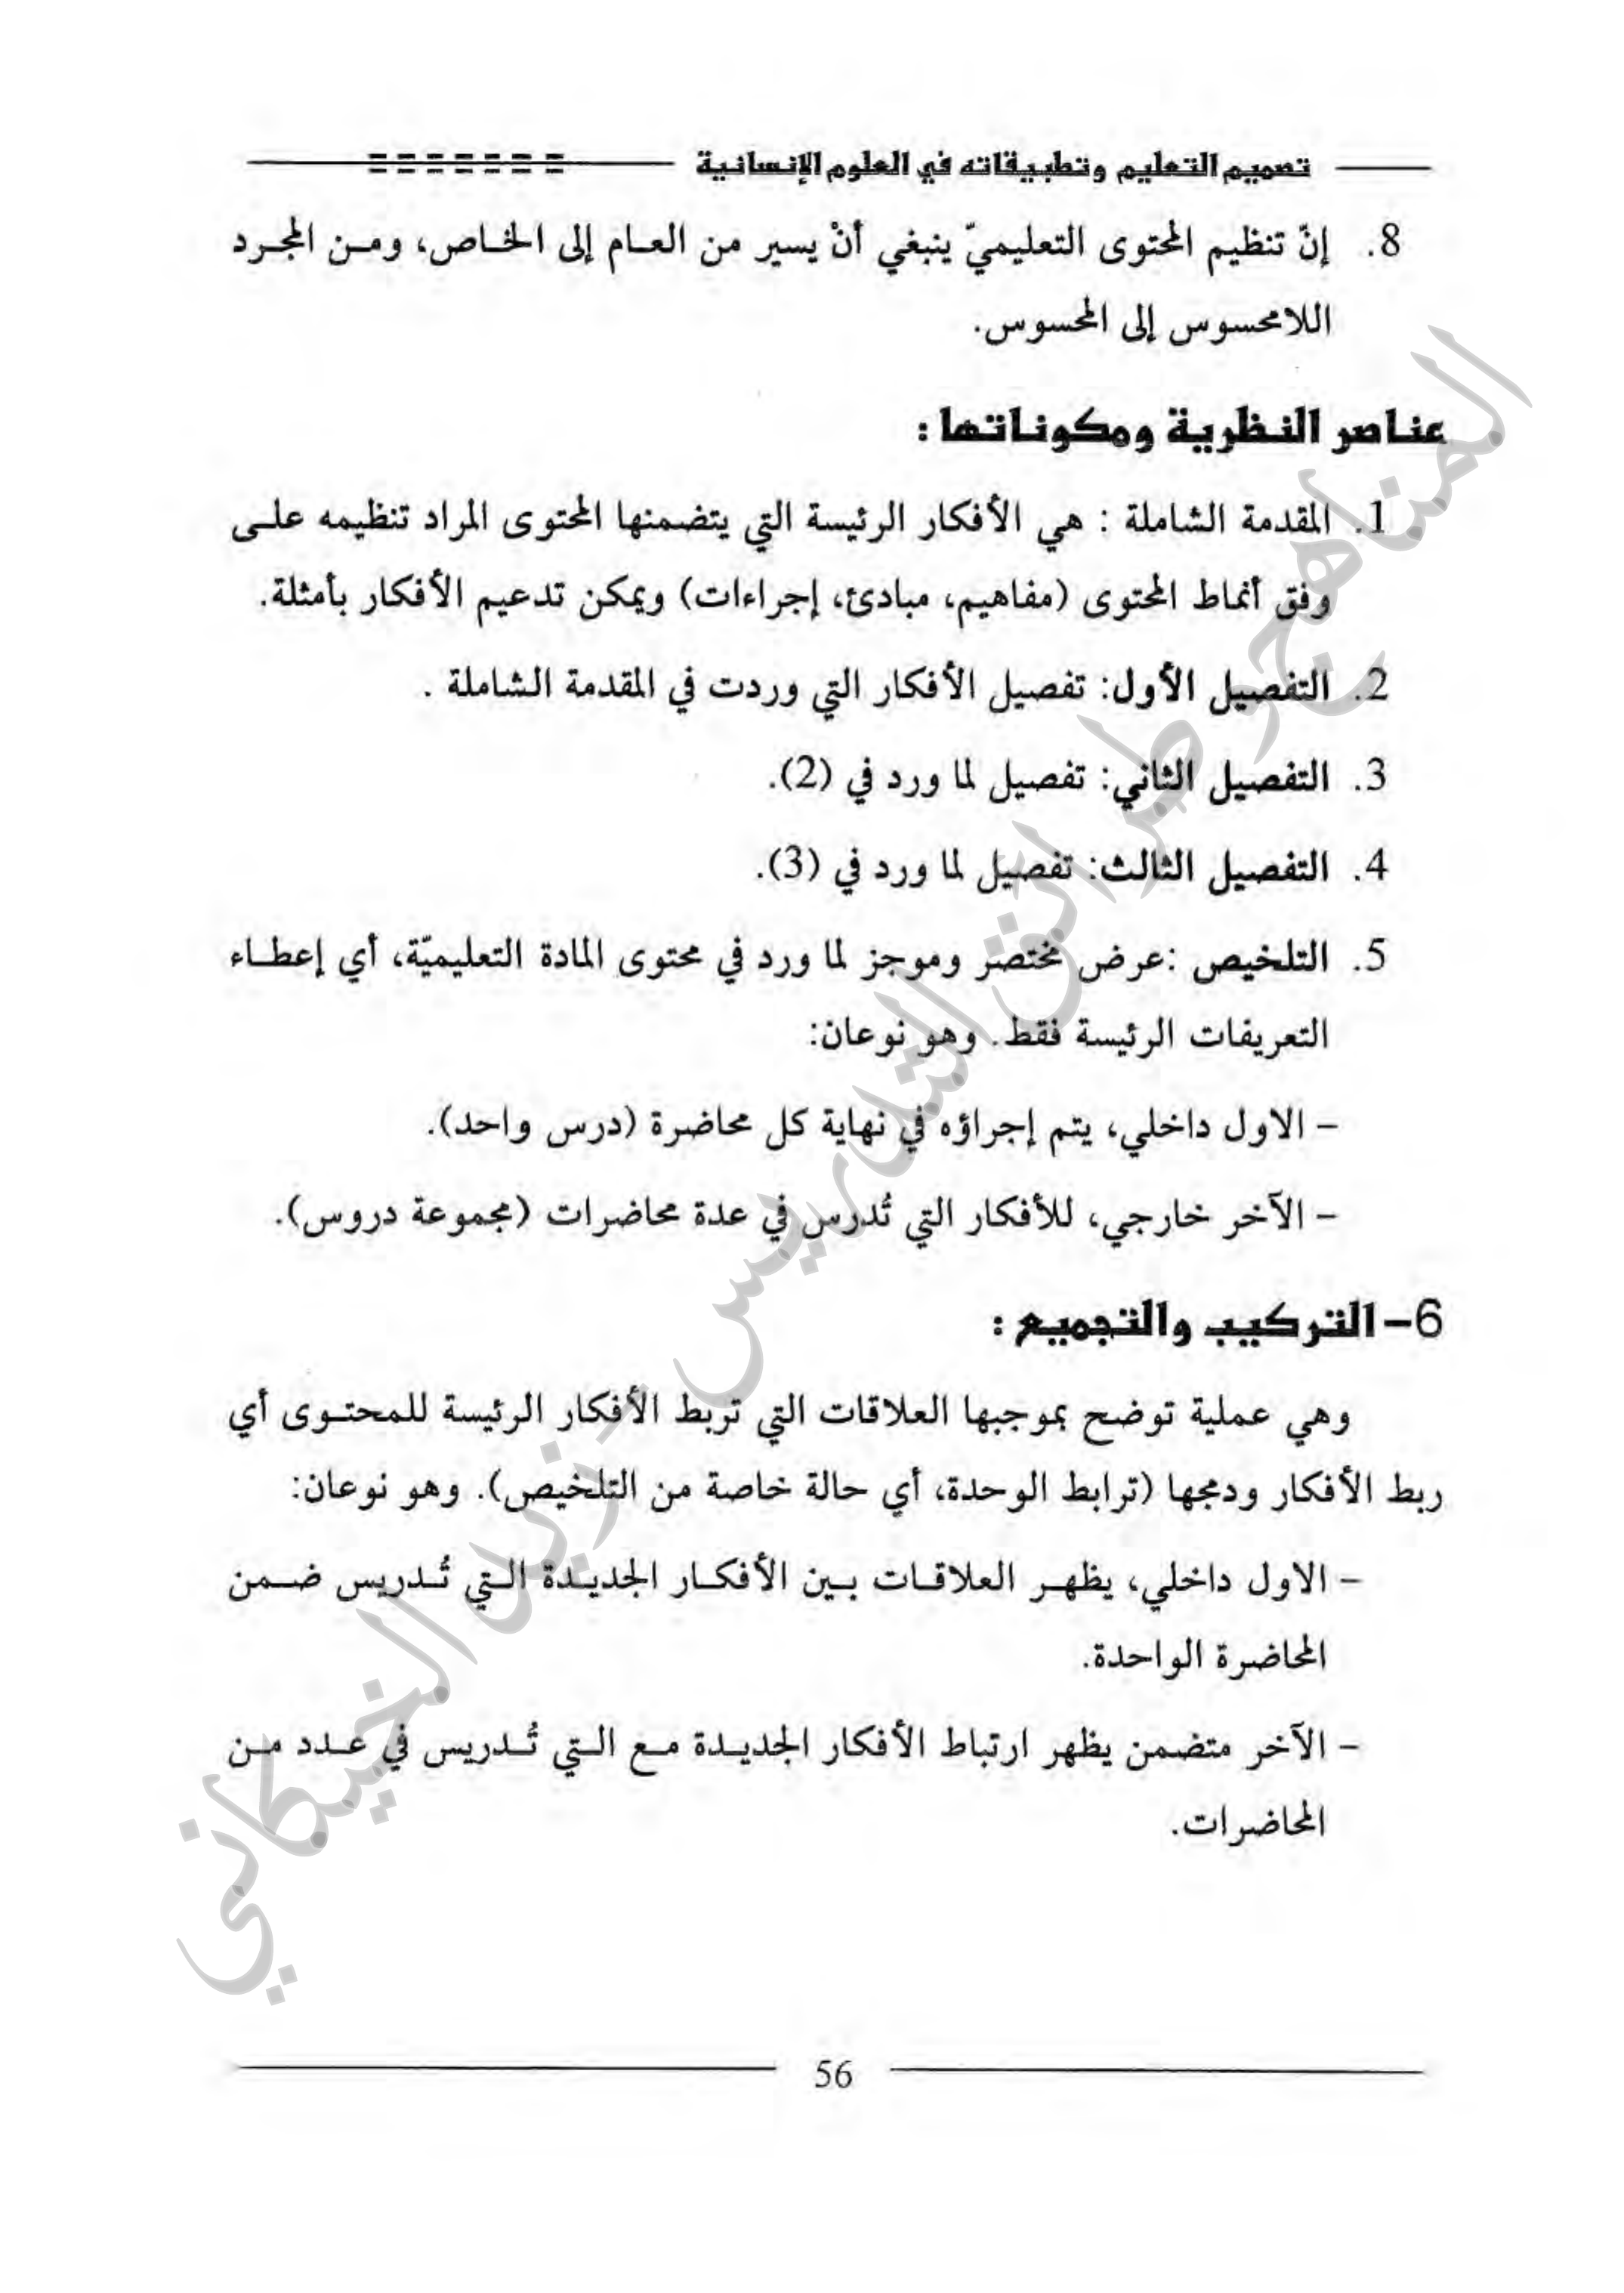 تصميم التعليم وتطبيقاته في العلوم الإنسانية
8. إنّ تنظيم المحتوى التعليميّ ينبغي أنْ يسير من العام إلى الخاص، ومن المجرد
اللامحسوس إلى المحسوس.
عناصر النظرية ومكوناتها:
1. المقدمة الشاملة : هي الأفكار الرئيسة التي يتضمنها المحتوى المراد تنظيمه على
وفق أنماط المحتوى (مفاهيم، مبادئ، إجراءات) ويمكن تدعيم الأفكار بأمثلة.
2. التفصيل الأول: تفصيل الأفكار التي وردت في المقدمة الشاملة .
3. التفصيل الثاني: تفصيل لما ورد في (2).
4. التفصيل الثالث: تفصيل لما ورد في (3).
5. التلخيص :عرض مختصر وموجز لما ورد في محتوى المادة التعليميّة، أي إعطاء
التعريفات الرئيسة فقط. وهو نوعان:
- الاول داخلي، يتم إجراؤه في نهاية كل محاضرة (درس واحد).
- الآخر خارجي، للأفكار التي تُدرس في عدة محاضرات (مجموعة دروس).
6- التركيب والتجميع :
وهي عملية توضح بموجبها العلاقات التي تربط الأفكار الرئيسة للمحتوى أي
ربط الأفكار ودمجها (ترابط الوحدة، أي حالة خاصة من التلخيص). وهو نوعان:
- الاول داخلي، يظهر العلاقات بين الأفكار الجديدة التي تُدريس ضمن
المحاضرة الواحدة.
- الآخر متضمن يظهر ارتباط الأفكار الجديدة مع التي تُدريس في عدد من
المحاضرات.
56
المناهج وطرائق التدريس - زيد الخيكاني